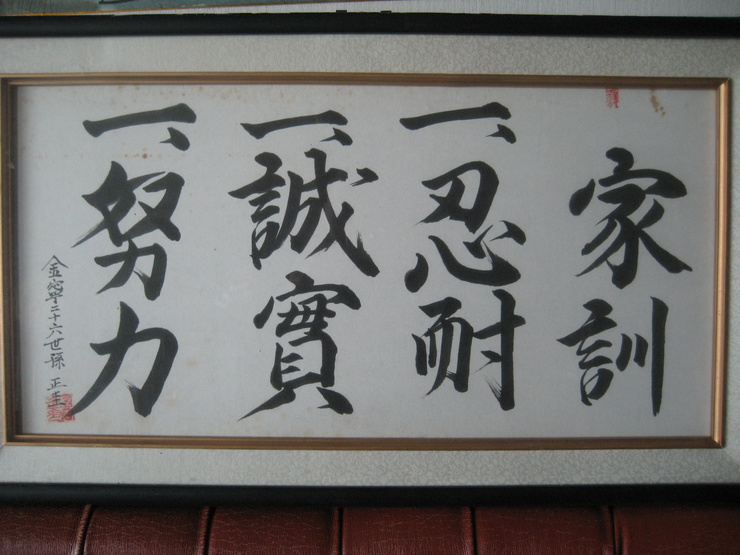 家訓
一、忍耐
一、誠實
一、努力
金寧二十六世孫 正圭